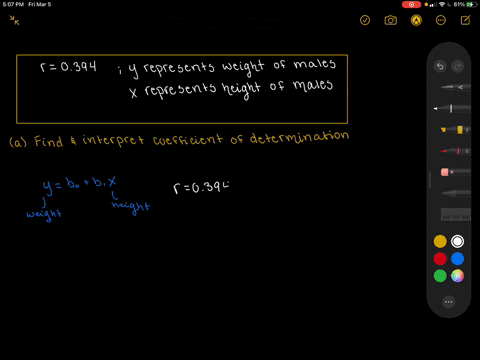 5:07 PM Fri Mar 5
61%
r = 0.394 ; y represents weight of males
x represents height of males
(a) Find & interpret coefficient of determination
y = b₀ + b₁ x
r = 0.394
weight
height